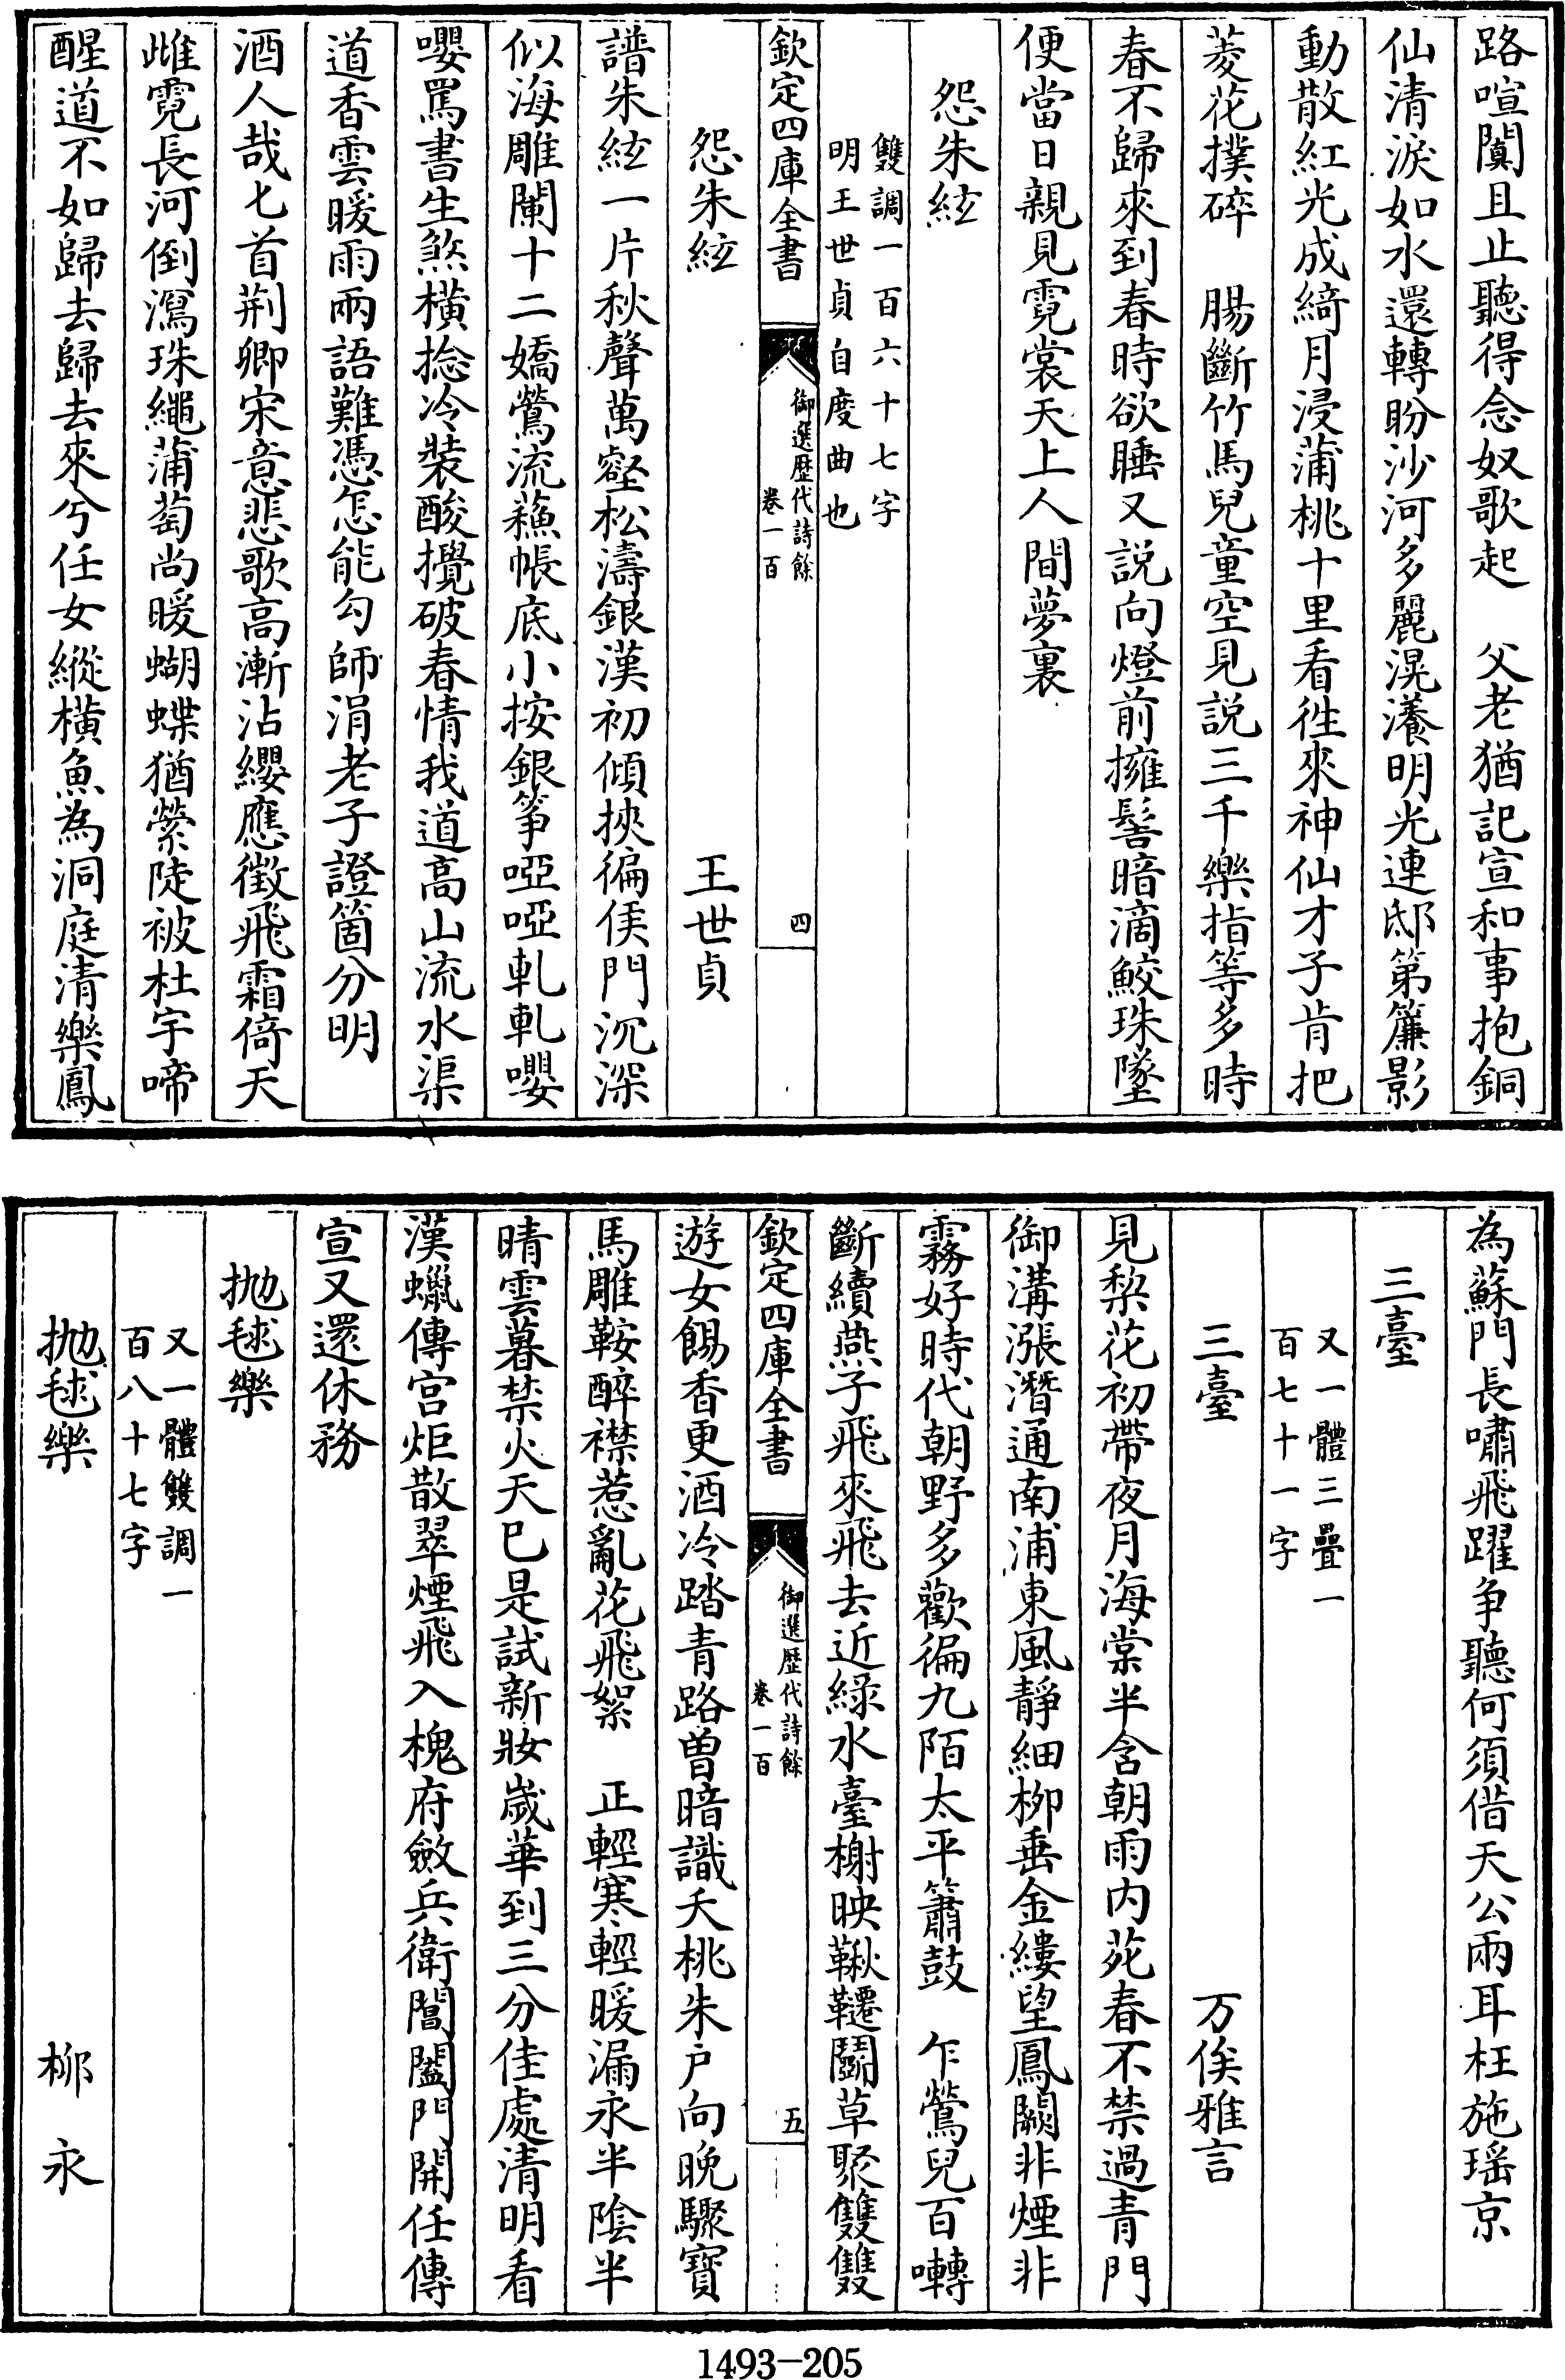 路喧闐且止聽得念奴歌起　父老猶記宣和事抱銅
仙清淚如水還轉盼沙河多麗滉瀁明光連邸第簾影
動散紅光成綺月浸蒲桃十里看徃來神仙才子肯把
菱花撲碎　腸斷竹馬兒童空見説三千樂指等多時
春不歸來到春時欲睡又説向燈前擁髻暗滴鮫珠墜
便當日親見霓裳天上人間夢裏
怨朱絃
雙調一百六十七字
明王世貞自度曲也
欽定四庫全書
御選歴代詩餘
卷一百
四
怨朱絃　王世貞
譜朱絃一片秋聲萬壑松濤銀漢初傾挾徧侯門沉深
似海雕闌十二嬌鶯流蘓帳底小按銀箏啞啞軋軋嚶
嚶罵書生煞橫捻冷裝酸攪破春情我道高山流水渠
道香雲暖雨兩語難憑怎能勾師涓老子證箇分明
酒人哉七首荆卿宋意悲歌高漸沾纓應徴飛霜倚天
雌霓長河倒瀉珠繩蒲萄尚暖蝴蝶猶縈陡被杜宇啼
醒道不如歸去歸去來兮任女縱橫魚為洞庭清樂鳳
為蘇門長嘯飛躍争聽何須借天公兩耳枉施瑶京
三臺
又一體三疊一
百七十一字
三臺　万俟雅言
見棃花初帶夜月海棠半含朝雨内苑春不禁過青門
御溝漲潛通南浦東風靜細柳垂金縷望鳳闕非煙非
霧好時代朝野多歡徧九陌太平簫鼓　乍鶯兒百囀
斷續燕子飛來飛去近綠水臺榭映鞦韆鬬草聚雙雙
欽定四庫全書
御選歴代詩餘
卷一百
五
遊女餳香更酒冷踏青路曽暗識夭桃朱户向晚驟寳
馬雕鞍醉襟惹亂花飛絮　正輕寒輕暖漏永半陰半
晴雲暮禁火天巳是試新妝嵗華到三分佳處清明看
漢蠟傳宫炬散翠煙飛入槐府斂兵衛閶闔門開任傳
宣又還休務
拋毬樂
又一體雙調一
百八十七字
拋毬樂　柳永
1493-205